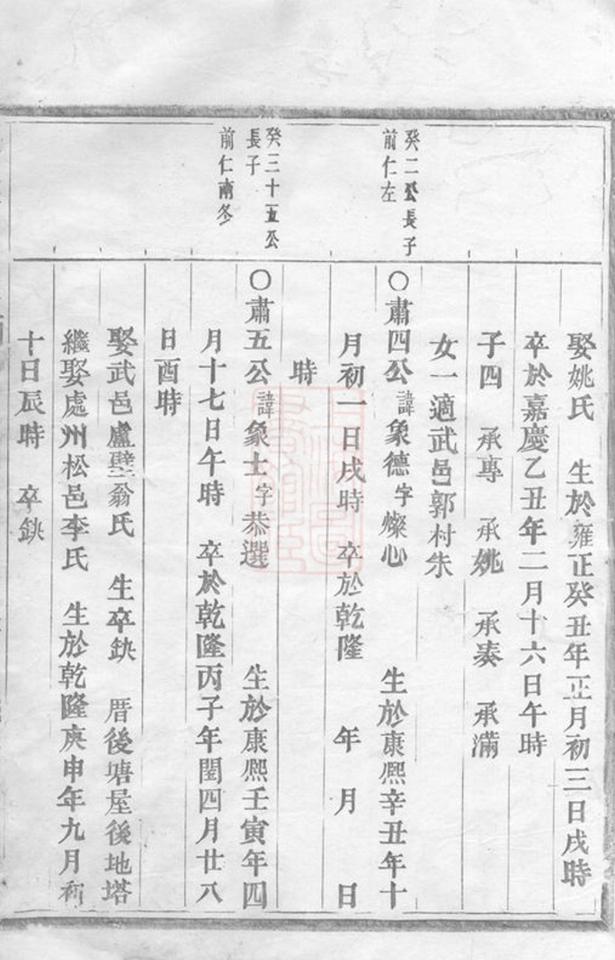 娶姚氏　生於雍正癸丑年正月初三日戌時
卒於嘉慶乙丑年二月十六日午時
子四　承專　承姚　承奏　承滿
女一適武邑郭村朱
癸二公長子
前仁左
○肅四公諱象德字燦心　生於康熙辛丑年十
月初一日戌時　卒於乾隆　年　月　日
時
癸三十五公
長子
前仁南冬
○肅五公諱象士字恭選　生於康熙壬寅年四
月十七日午時　卒於乾隆丙子年閏四月廿八
日酉時
娶武邑盧壁翁氏　生卒鈌　厝後塘屋後地塔
繼娶處州松邑李氏　生於乾隆庚申年九月初
十日辰時　卒鈌